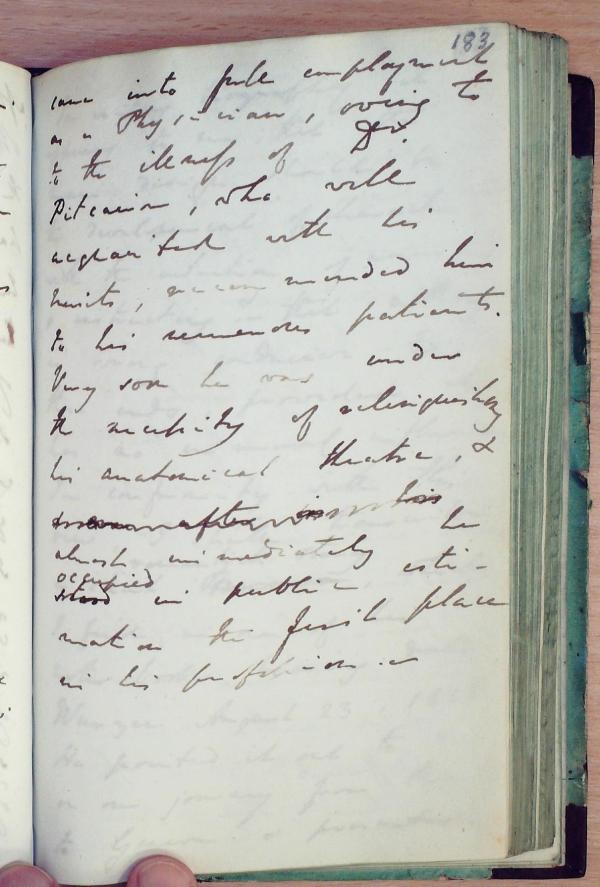 183
came into full employment
as a Physician, owing to
to the illness of Dr.
Pitcairn, who well
acquainted with his
merits, recommended him
to his numerous patients.
Very soon he was under
the necessity of relinquishing
his anatomical theatre, &
soon after his he
almost immediately
occupied
stood in public esti-
mation the first place
in his profession.